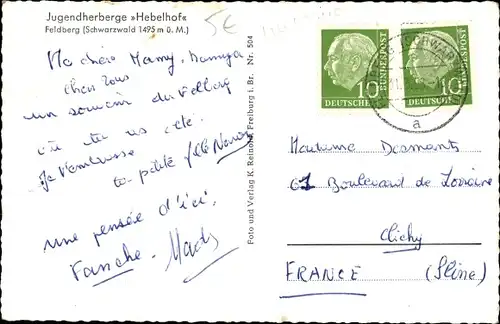 Jugendherberge »Hebelhof«
Feldberg (Schwarzwald 1495 m ü. M.)
5€
Ma chère Mamy,
chers tous
un souvenir du Felberg
où tu as été.
Je t'embrasse
ta petite fille
une pensée d'ici.
Fanche - Mady
Foto und Verlag K. Reinold, Freiburg i. Br. Nr. 504
10 DEUTSCHE BUNDESPOST
10 DEUTSCHE BUNDESPOST
a
Madame Desmants
61 Boulevard de Lorraine
Clichy
FRANCE (Seine)